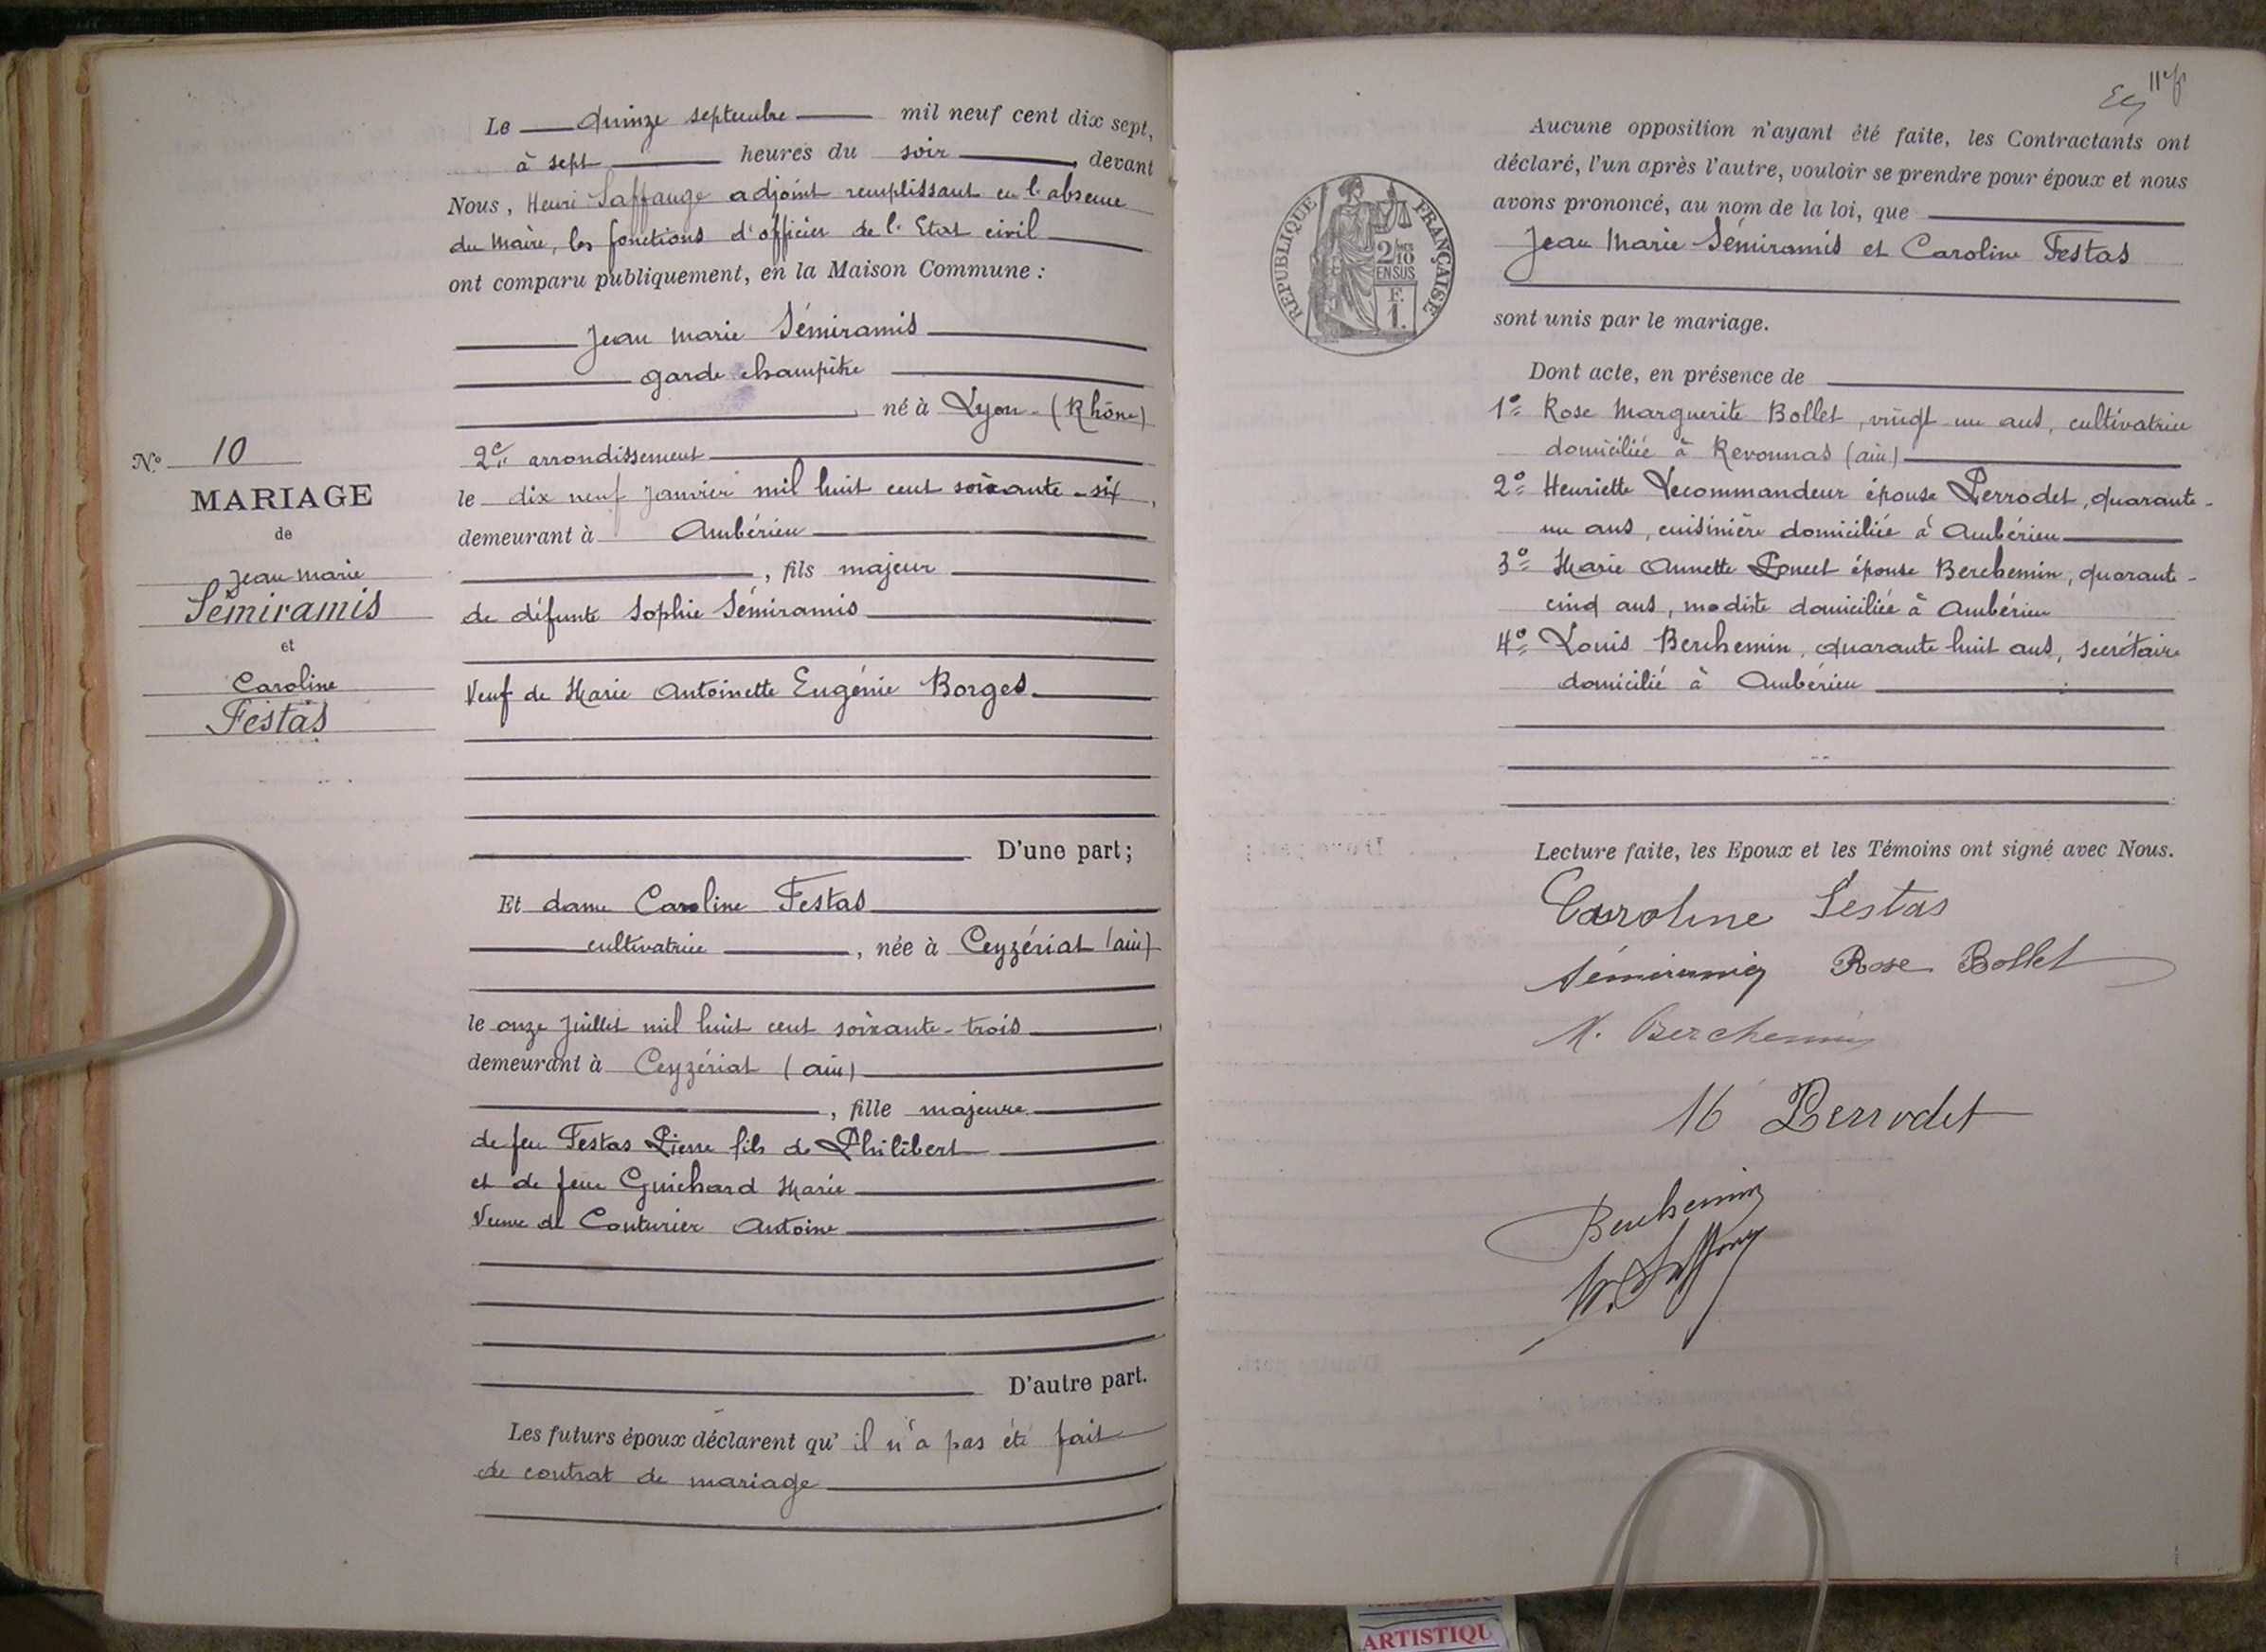 Le quinze septembre mil neuf cent dix sept,
à sept heures du soir, devant
Nous, Henri Saffange adjoint remplissant en l'absence
du Maire, les fonctions d'officier de l'Etat civil
ont comparu publiquement, en la Maison Commune :
Jean Marie Sémiramis
garde champêtre
né à Lyon - (Rhône)
2e arrondissement
le dix neuf Janvier mil huit cent soixante-six,
demeurant à Ambérieu
, fils majeur
de défunte Sophie Sémiramis
Veuf de Marie Antoinette Eugénie Borges
D'une part;
N° 10
MARIAGE
de
Jean Marie
Sémiramis
et
Caroline
Festas
Et dame Caroline Festas
cultivatrice, née à Ceyzériat (ain)
le onze Juillet mil huit cent soixante-trois
demeurant à Ceyzériat (ain)
, fille majeure
de feu Festas Pierre fils de Philibert
et de feue Guichard Marie
Veuve de Couturier Antoine
D'autre part.
Les futurs époux déclarent qu'il n'a pas été fait
de contrat de mariage
Aucune opposition n'ayant été faite, les Contractants ont
déclaré, l'un après l'autre, vouloir se prendre pour époux et nous
avons prononcé, au nom de la loi, que
Jean Marie Sémiramis et Caroline Festas
sont unis par le mariage.
REPUBLIQUE FRANÇAISE
2/10
EN SUS
F.
1.
Dont acte, en présence de
1° Rose Marguerite Bollet, vingt un ans, cultivatrice
domiciliée à Revonnas (ain)
2° Henriette Lecommandeur épouse Perrodet, quarante-
un ans, cuisinière domiciliée à Ambérieu
3° Marie Annette Poncet épouse Berchemin, quarante-
cinq ans, modiste domiciliée à Ambérieu
4° Louis Berchemin, quarante huit ans, secrétaire
domicilié à Ambérieu
Lecture faite, les Epoux et les Témoins ont signé avec Nous.
Caroline Festas
Sémiramis Rose Bollet
M. Berchemin
Perrodet
Berchemin
ARTISTIQU